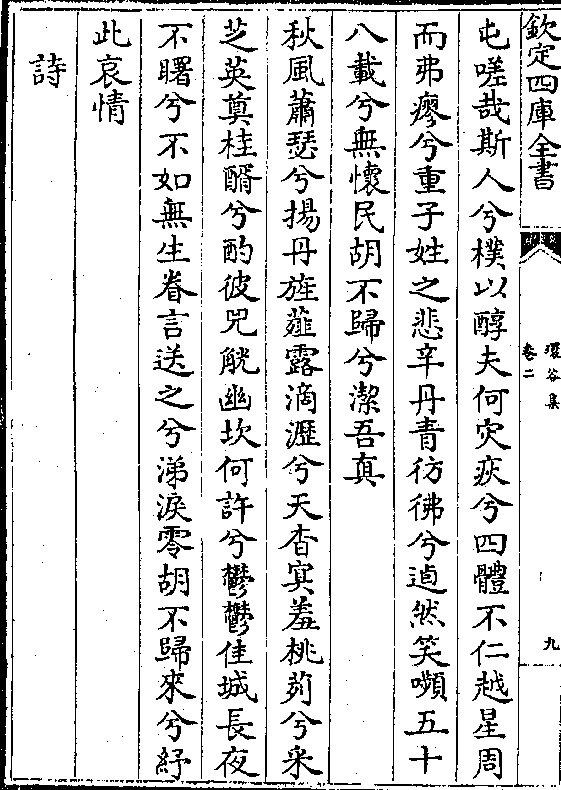 欽定四庫全書
環谷集
卷二
九
屯嗟哉斯人兮樸以醇夫何灾疢兮四體不仁越星周
而弗瘳兮重子姓之悲辛丹青彷彿兮逌然笑嚬五十
八載兮無懷民胡不歸兮潔吾真
秋風蕭瑟兮揚丹旌薤露滴瀝兮天杳冥羞桃茢兮采
芝英奠桂醑兮酌彼兕觥幽坎何許兮鬱鬱佳城長夜
不曙兮不如無生眷言送之兮涕淚零胡不歸來兮紓
此哀情
詩